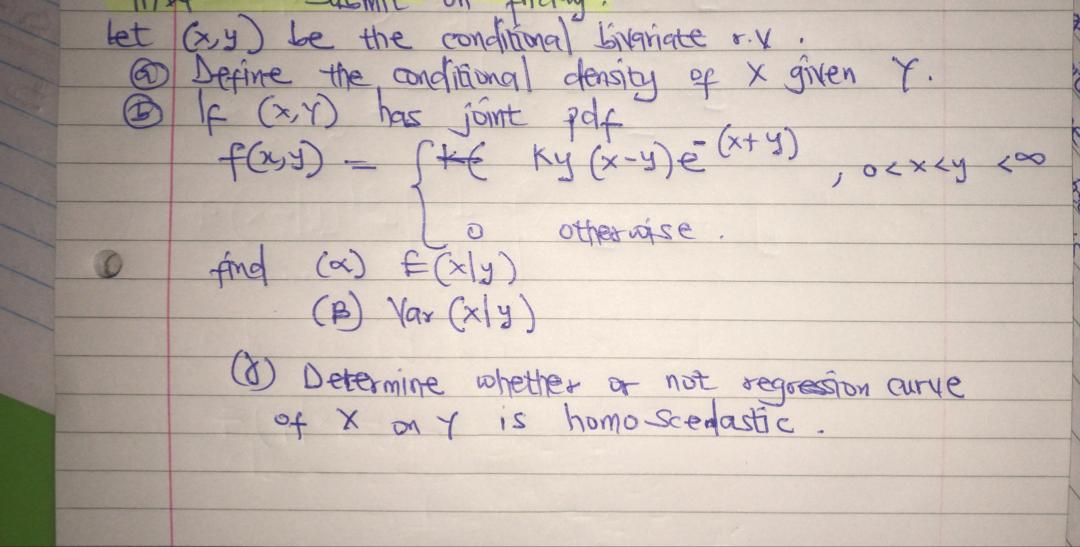 Let (x,y) be the conditional bivariate r.v.
(a) Define the conditional density of X given Y.
(b) If (X,Y) has joint pdf
f(x,y) = { Ky (x-y)e^-(x+y) , 0<x<y <∞
0 otherwise.
find (α) E(x|y)
(β) Var (x|y)
(γ) Determine whether or not regression curve
of X on Y is homo-scedastic.